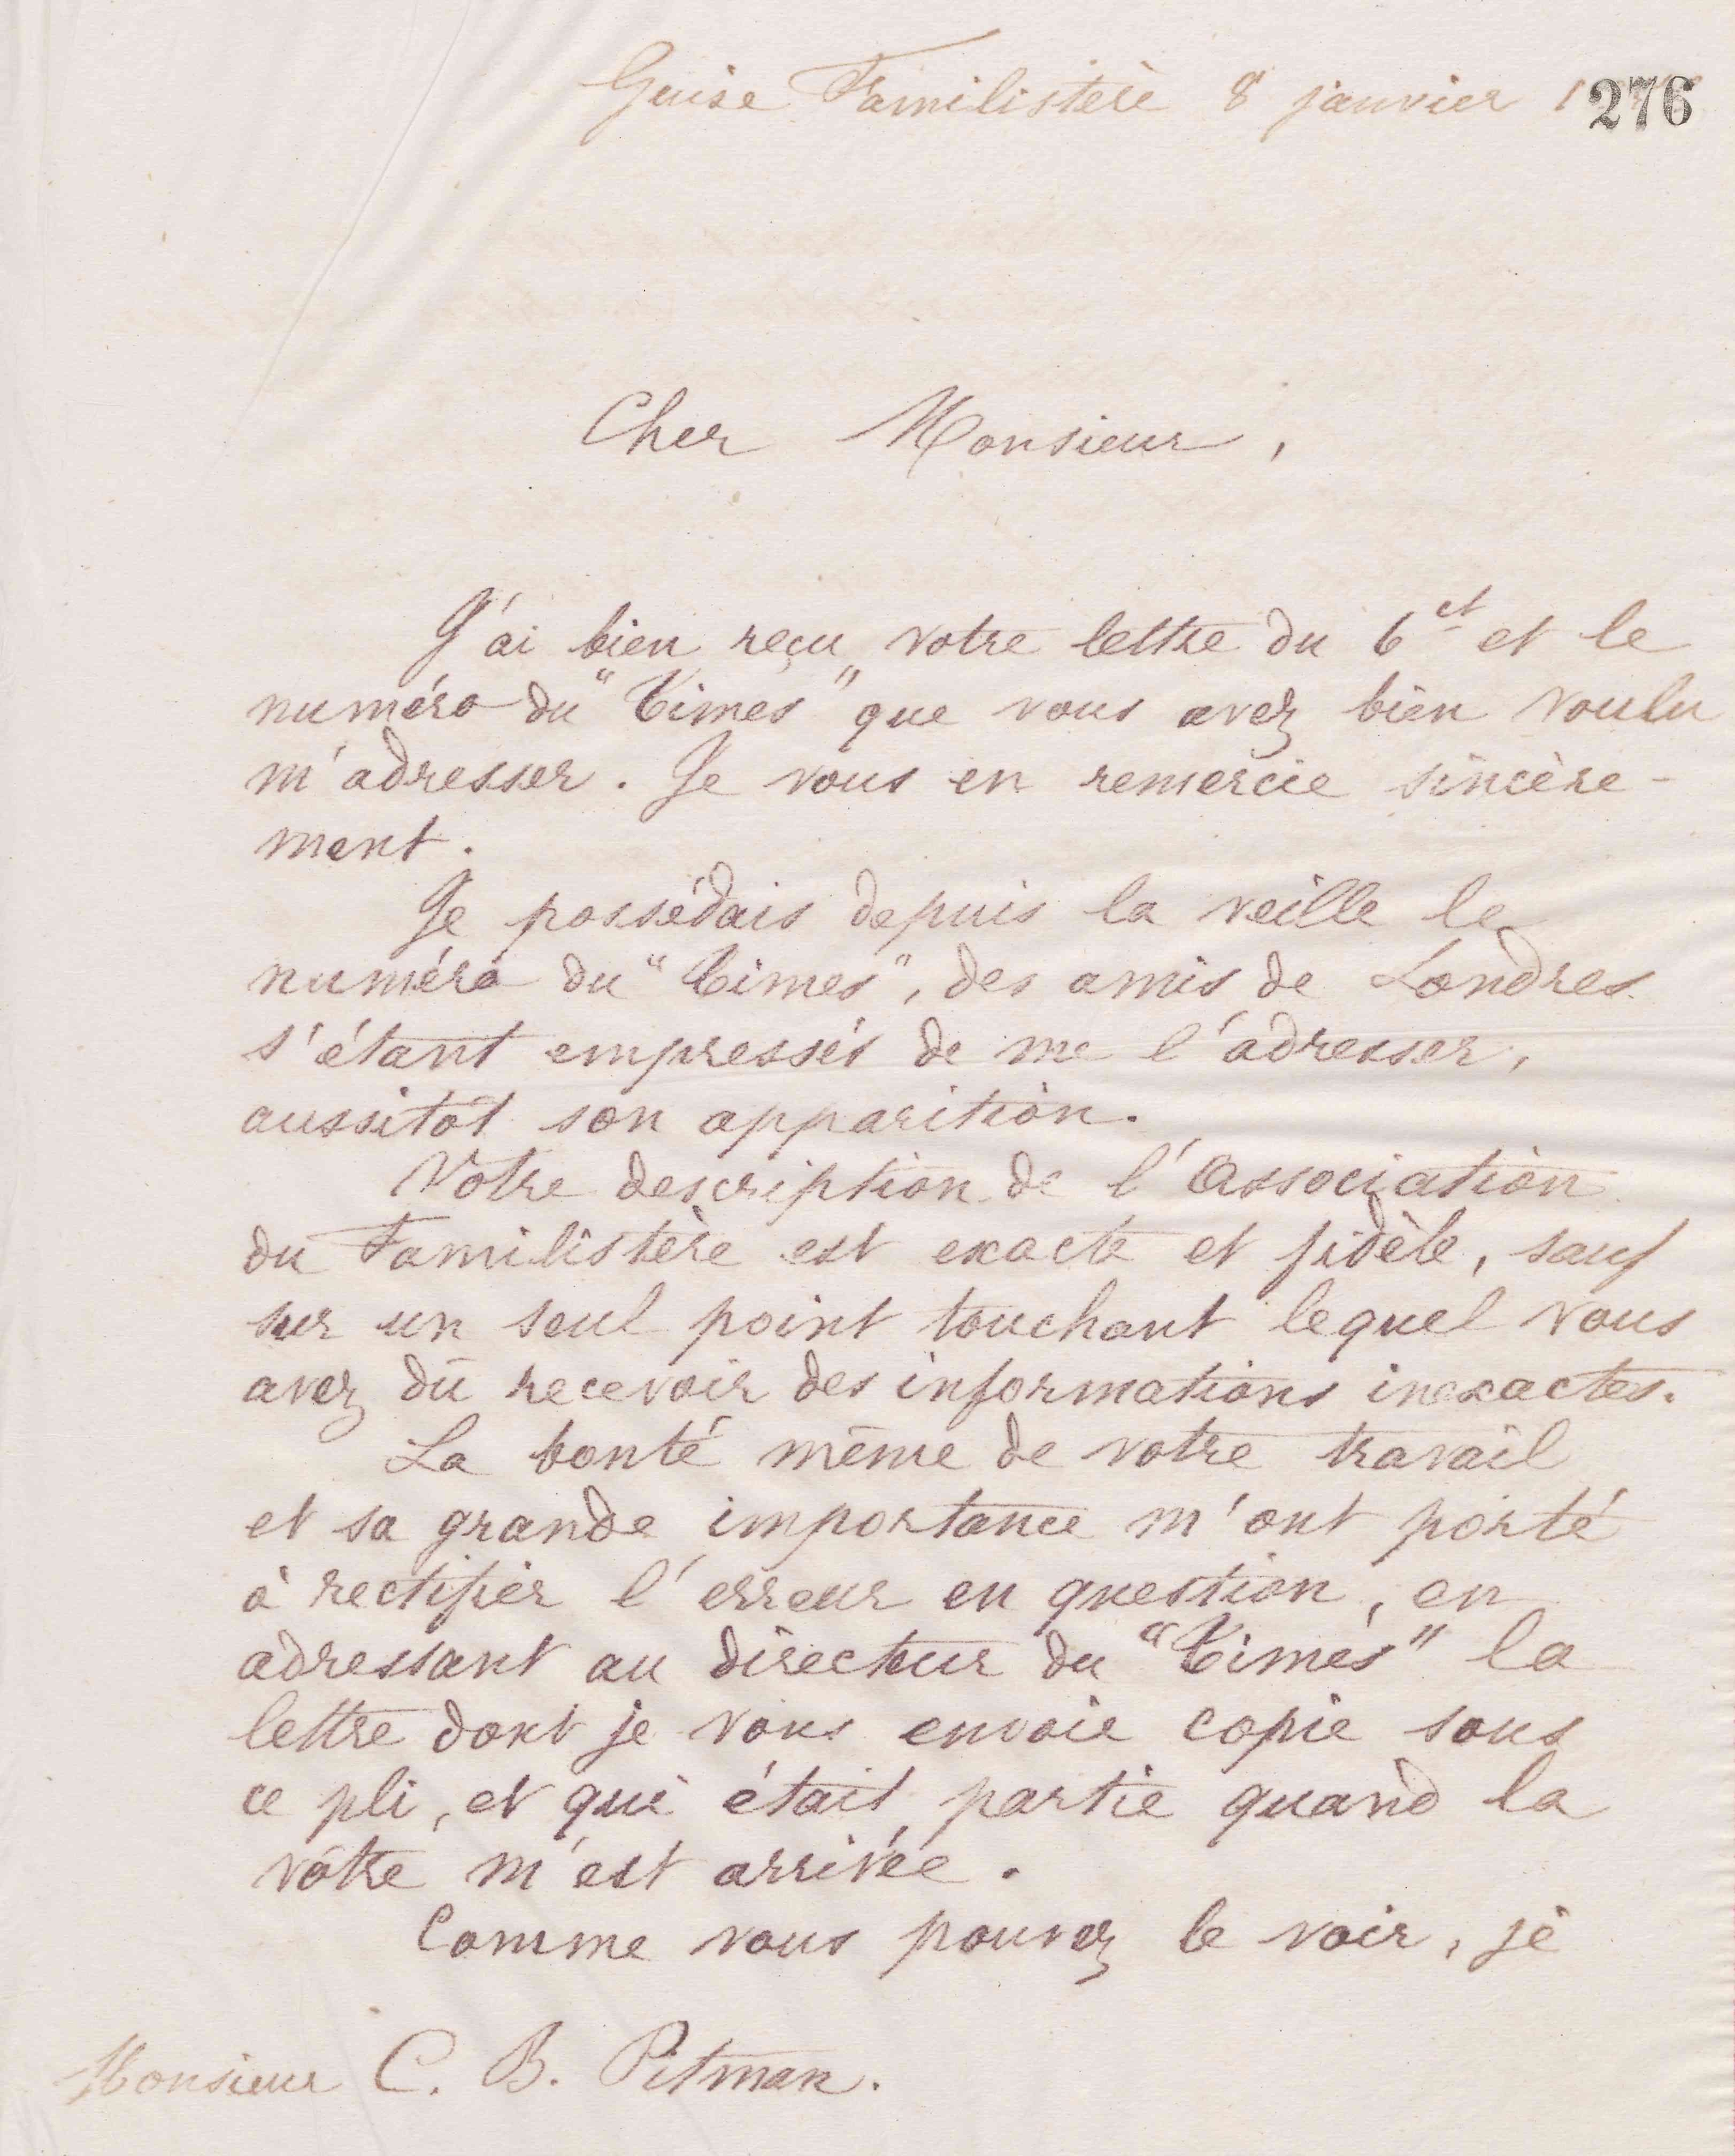 Guise Familistère 8 janvier 1
276
Cher Monsieur,
J'ai bien reçu votre lettre du 6 ct et le
numéro du "Times" que vous avez bien voulu
m'adresser. Je vous en remercie sincère-
ment.
Je possédais depuis la veille le
numéro du "Times", des amis de Londres
s'étant empressés de me l'adresser,
aussitôt son apparition.
Votre description de l'Association
du Familistère est exacte et fidèle, sauf
sur un seul point touchant lequel vous
avez dû recevoir des informations inexactes.
La bonté même de votre travail
et sa grande importance m'ont porté
à rectifier l'erreur en question, en
adressant au directeur du "Times" la
lettre dont je vous envoie copie sous
ce pli, et qui était partie quand la
vôtre m'est arrivée.
Comme vous pouvez le voir, je
Monsieur C. B. Pitman.